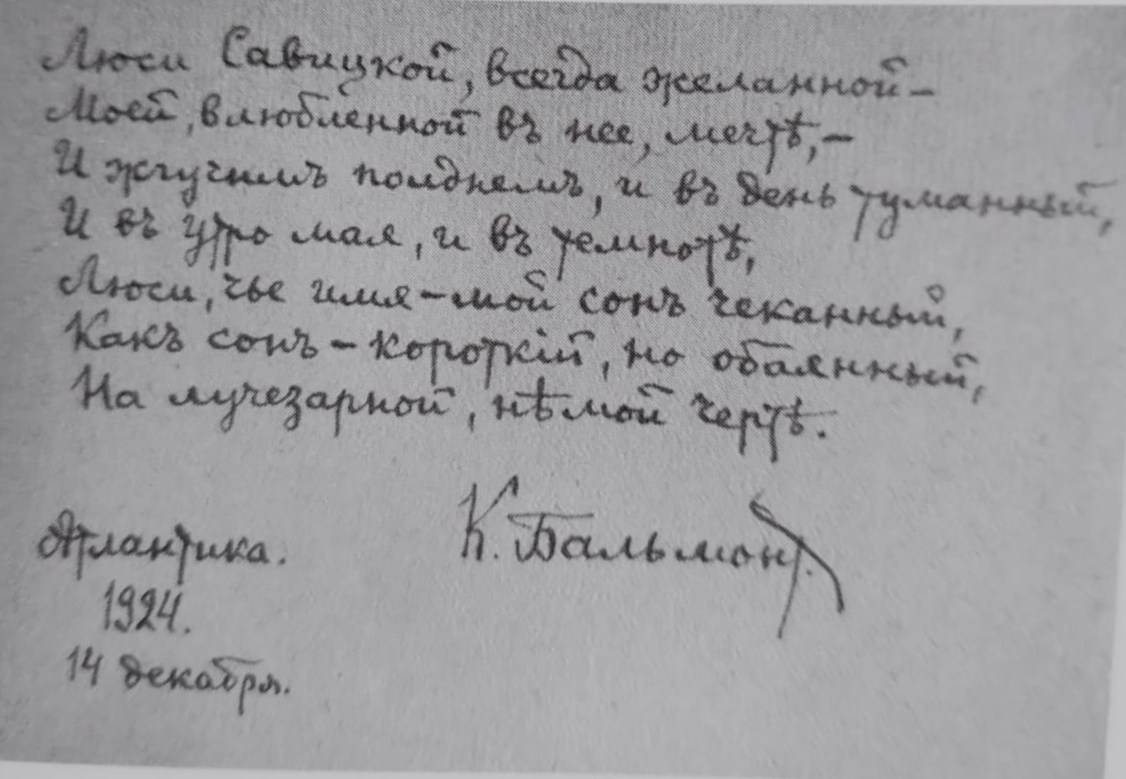 Люси Савицкой, всегда желанной –
Моей, влюбленной въ нее, мечтѣ, –
И жгучимъ полднемъ, и въ день туманный,
И въ утро мая, и въ темнотѣ,
Люси, чье имя – мой сонъ чеканный,
Какъ сонъ – короткій, но обаянный,
На лучезарной, нѣмой чертѣ.
К. Бальмонт.
Атлантика.
1924.
14 декабря.